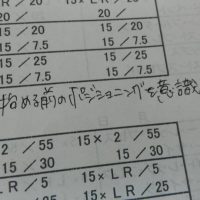 LR / 20  15× LR / 20
20 /  20 /
15 / 20  15 / 20
15 / 7.5  15 / 7.5
15 / 25  15 / 25
15 / 7.5  15 / 7.5
始める前のポジショニングを意識
2 / 55  15× 2 / 55
15 / 30  15 / 30
LR / 5  15× LR / 5
15× LR / 25